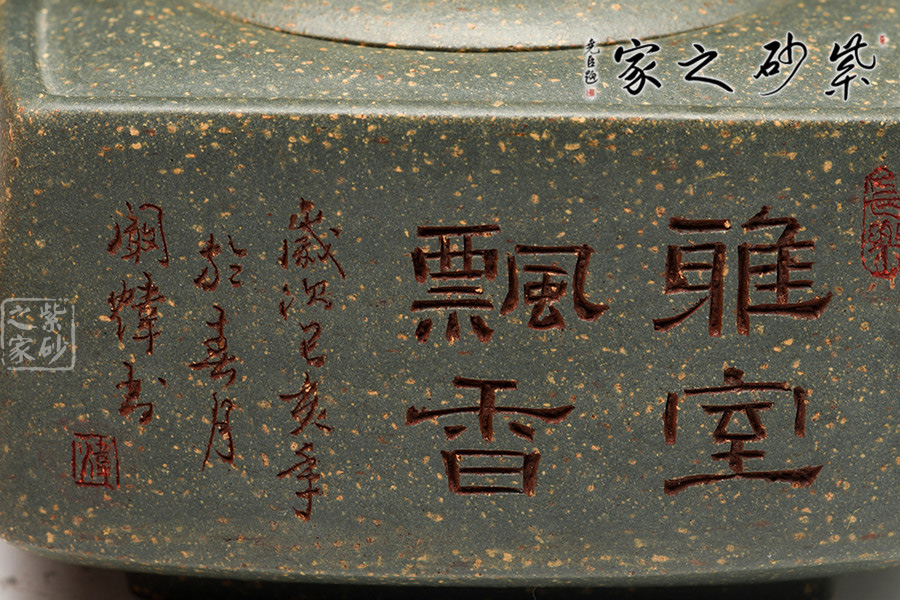 紫砂之家
雅室
飄香
歲次己亥年
於春月
煒书
紫砂之家